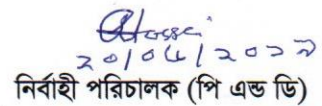 ২০/০৫/২০১৯
নির্বাহী পরিচালক (পি এন্ড ডি)